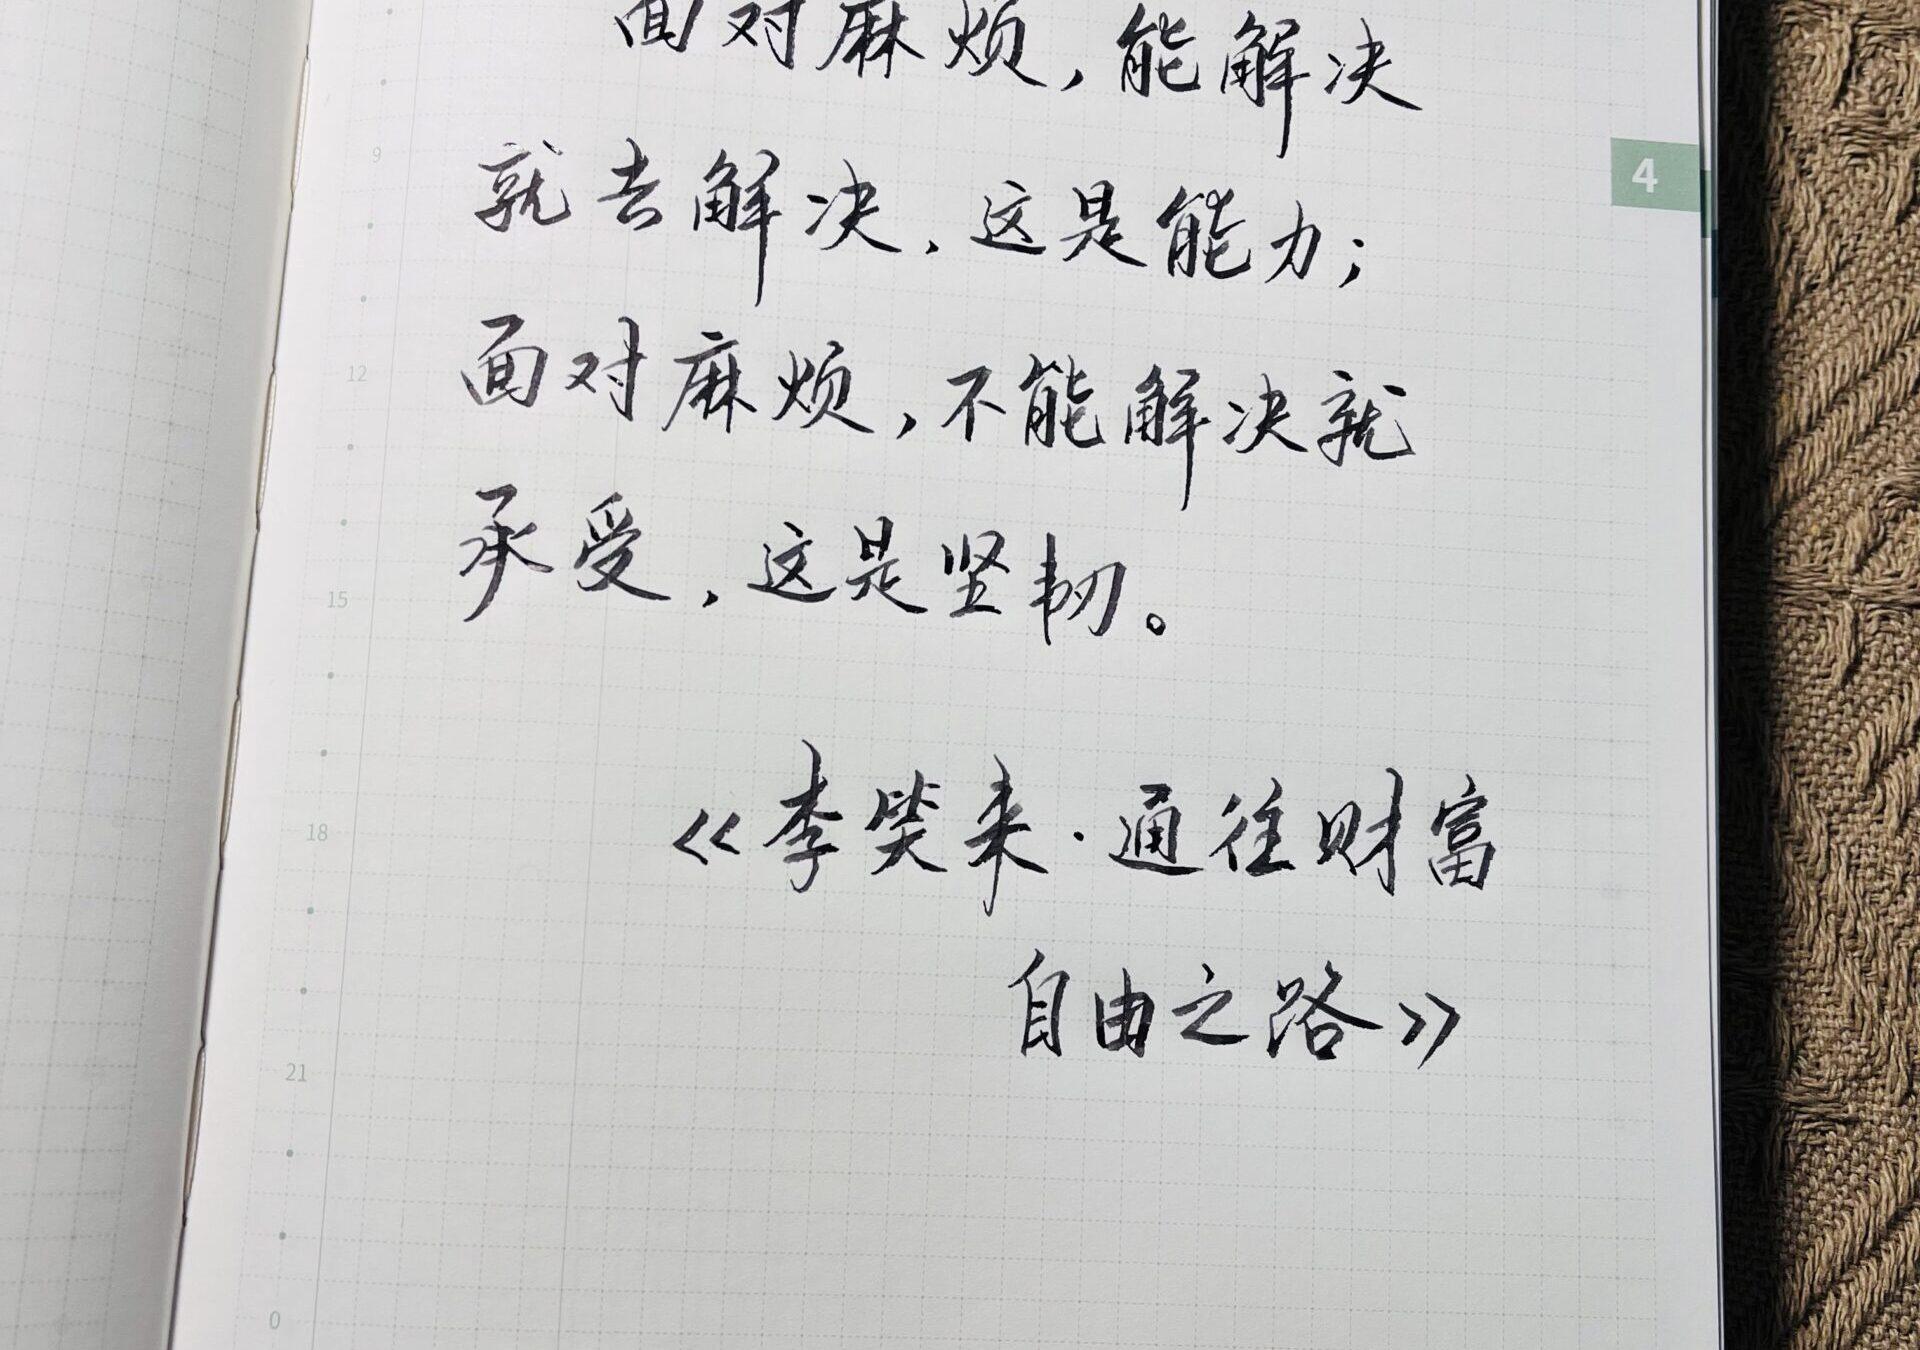 面对麻烦，能解决
9
4
就去解决，这是能力；
12
面对麻烦，不能解决就
承受，这是坚韧。
15
18
《李笑来·通往财富
自由之路》
21
0